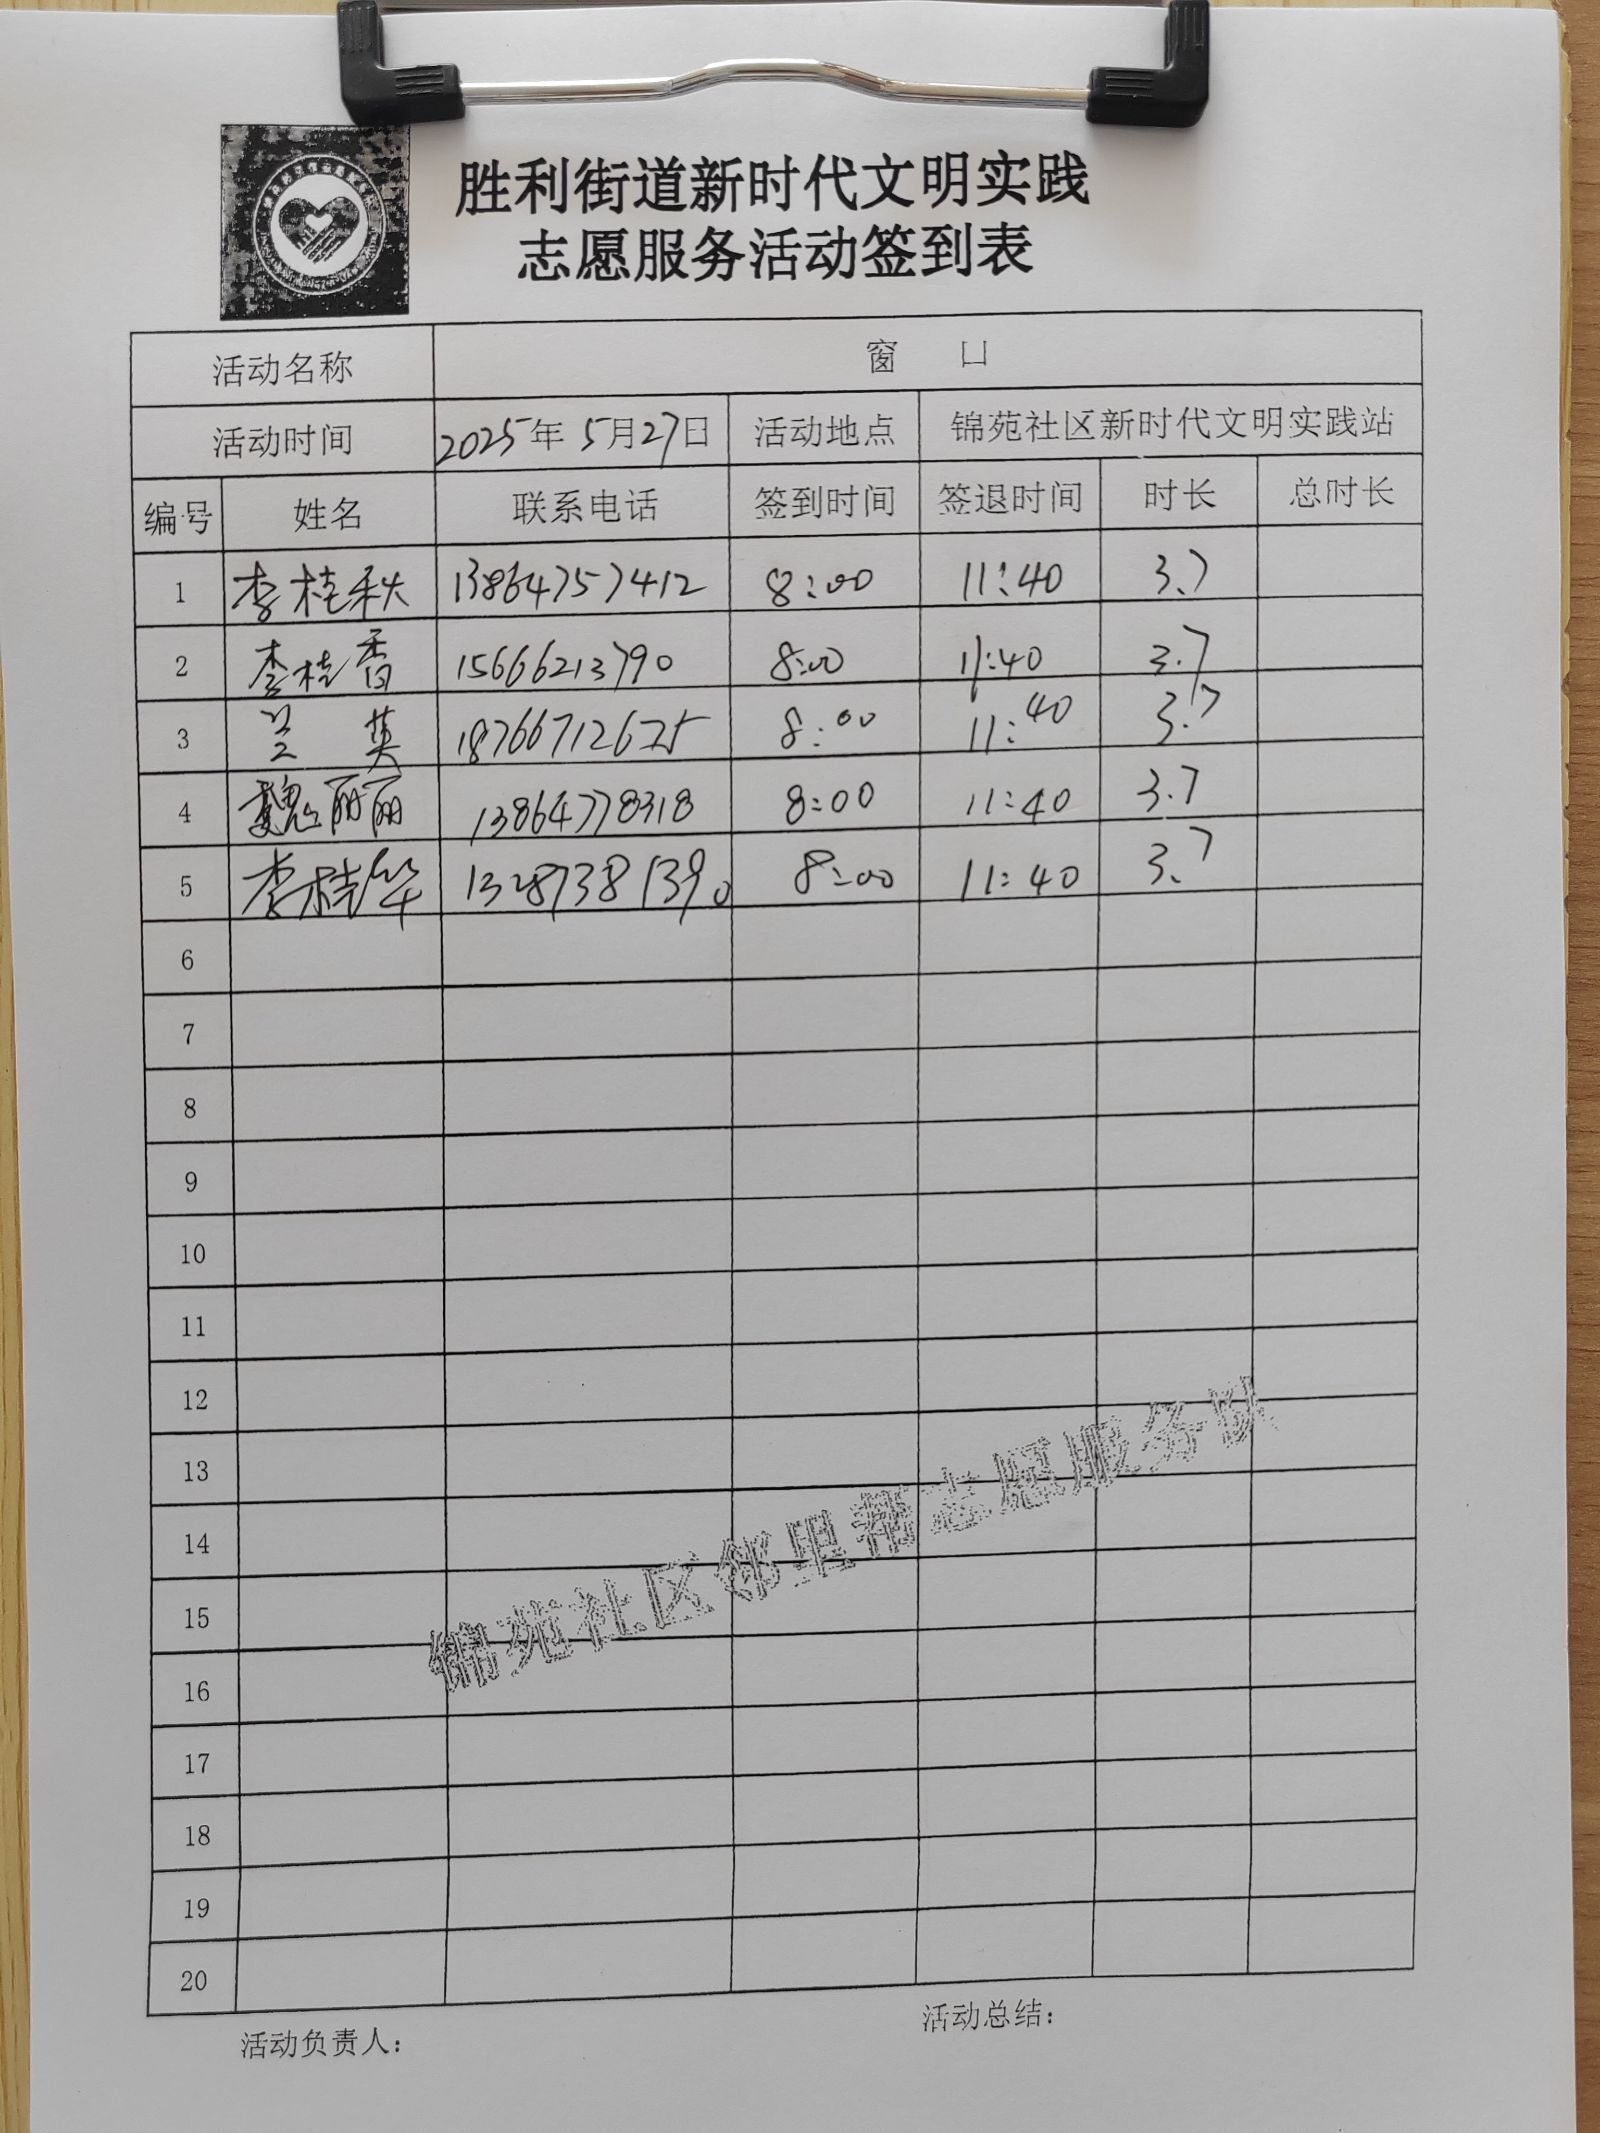 胜利街道新时代文明实践
志愿服务活动签到表
活动名称 窗 口
活动时间 2025年5月27日 活动地点 锦苑社区新时代文明实践站
编号 姓名 联系电话 签到时间 签退时间 时长 总时长
1 李桂秋 13864757412 8:00 11:40 3.7
2 李桂香 15666213790 8:00 11:40 3.7
3 兰英 18766712675 8:00 11:40 3.7
4 魏丽丽 13864778318 8:00 11:40 3.7
5 李桂华 13287381390 8:00 11:40 3.7
6
7
8
9
10
11
12
13
14
15
16
17
18
19
20
锦苑社区邻里帮志愿服务队
活动负责人：
活动总结：